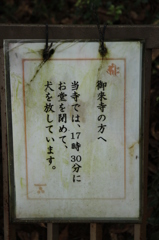 御来寺の方へ
当寺では、17時30分に
お堂を閉めて、
犬を放しています。